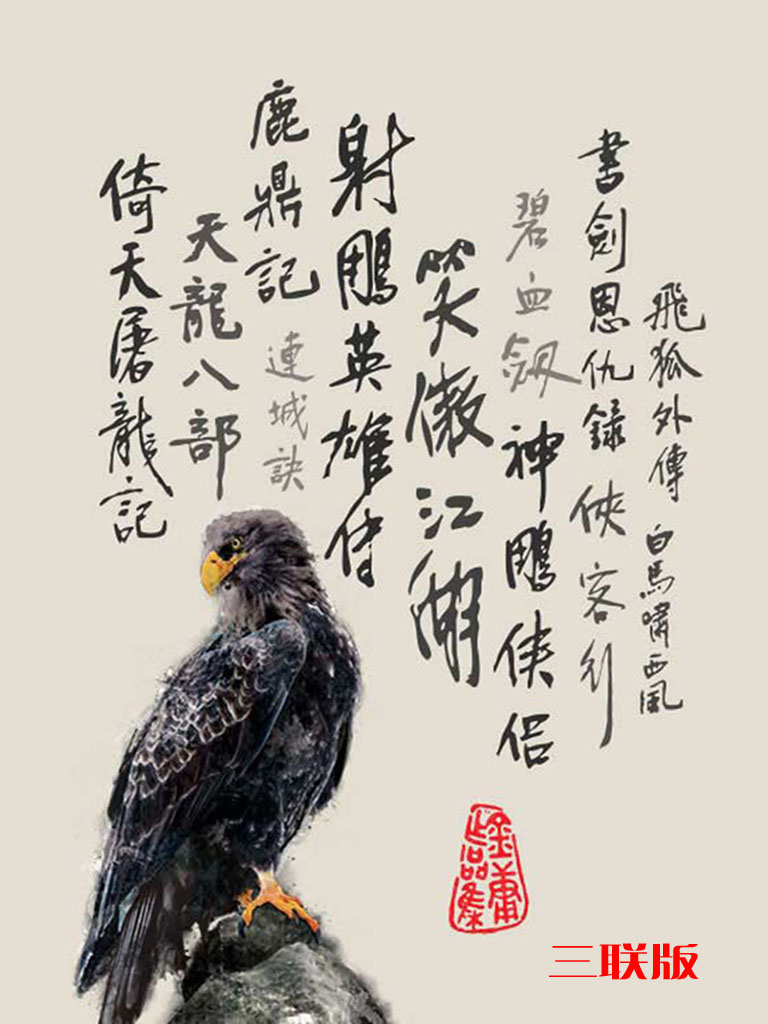 飛狐外傳
白馬嘯西風
書劍恩仇錄
俠客行
碧血劒
神鵰俠侶
笑傲江湖
射鵰英雄傳
鹿鼎記
連城訣
天龍八部
倚天屠龍記
金庸
作品集
三联版